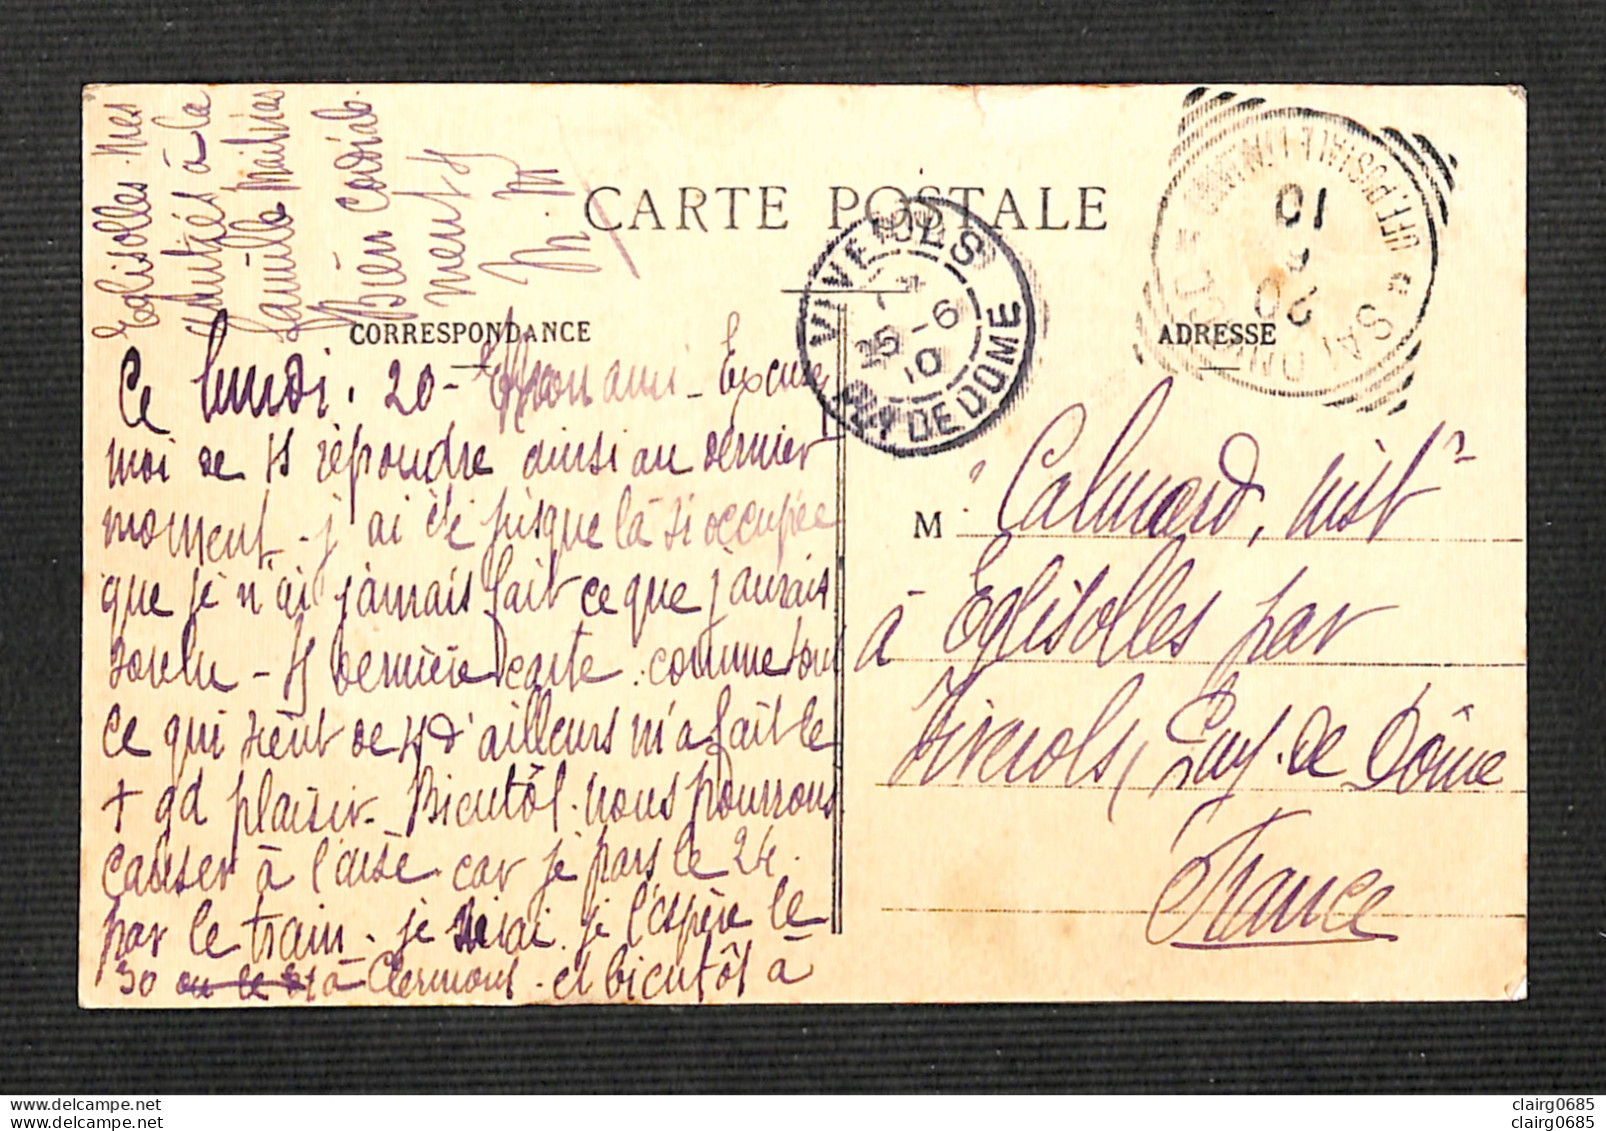 CARTE POSTALE
CORRESPONDANCE
ADRESSE
Ce lundi. 20 - Mon ami - Excusez
moi de vs répondre ainsi au dernier
moment - j'ai été jusque là si occupée
que je n'ai jamais fait ce que j'aurais
voulu - Vs dernière carte comme tout
ce qui vient de vs d'ailleurs m'a fait le
+ gd plaisir - Bientôt nous pourrons
causer à l'aise car je pars le 24
par le train - je serai je l'espère le
30 ou le 31 à Clermont - et bientôt à
Eglisolles. Mes
amitiés à la
famille
Bien cordiale
ment vs
M. M
M Calmard, inst r
à Eglisolles par
Viverols, Puy-de-Dôme
France
VIVEROLS
25 - 6
10
PUY DE DOME
20
10
clairg0685
clairg0685
clairg0685
clairg0685